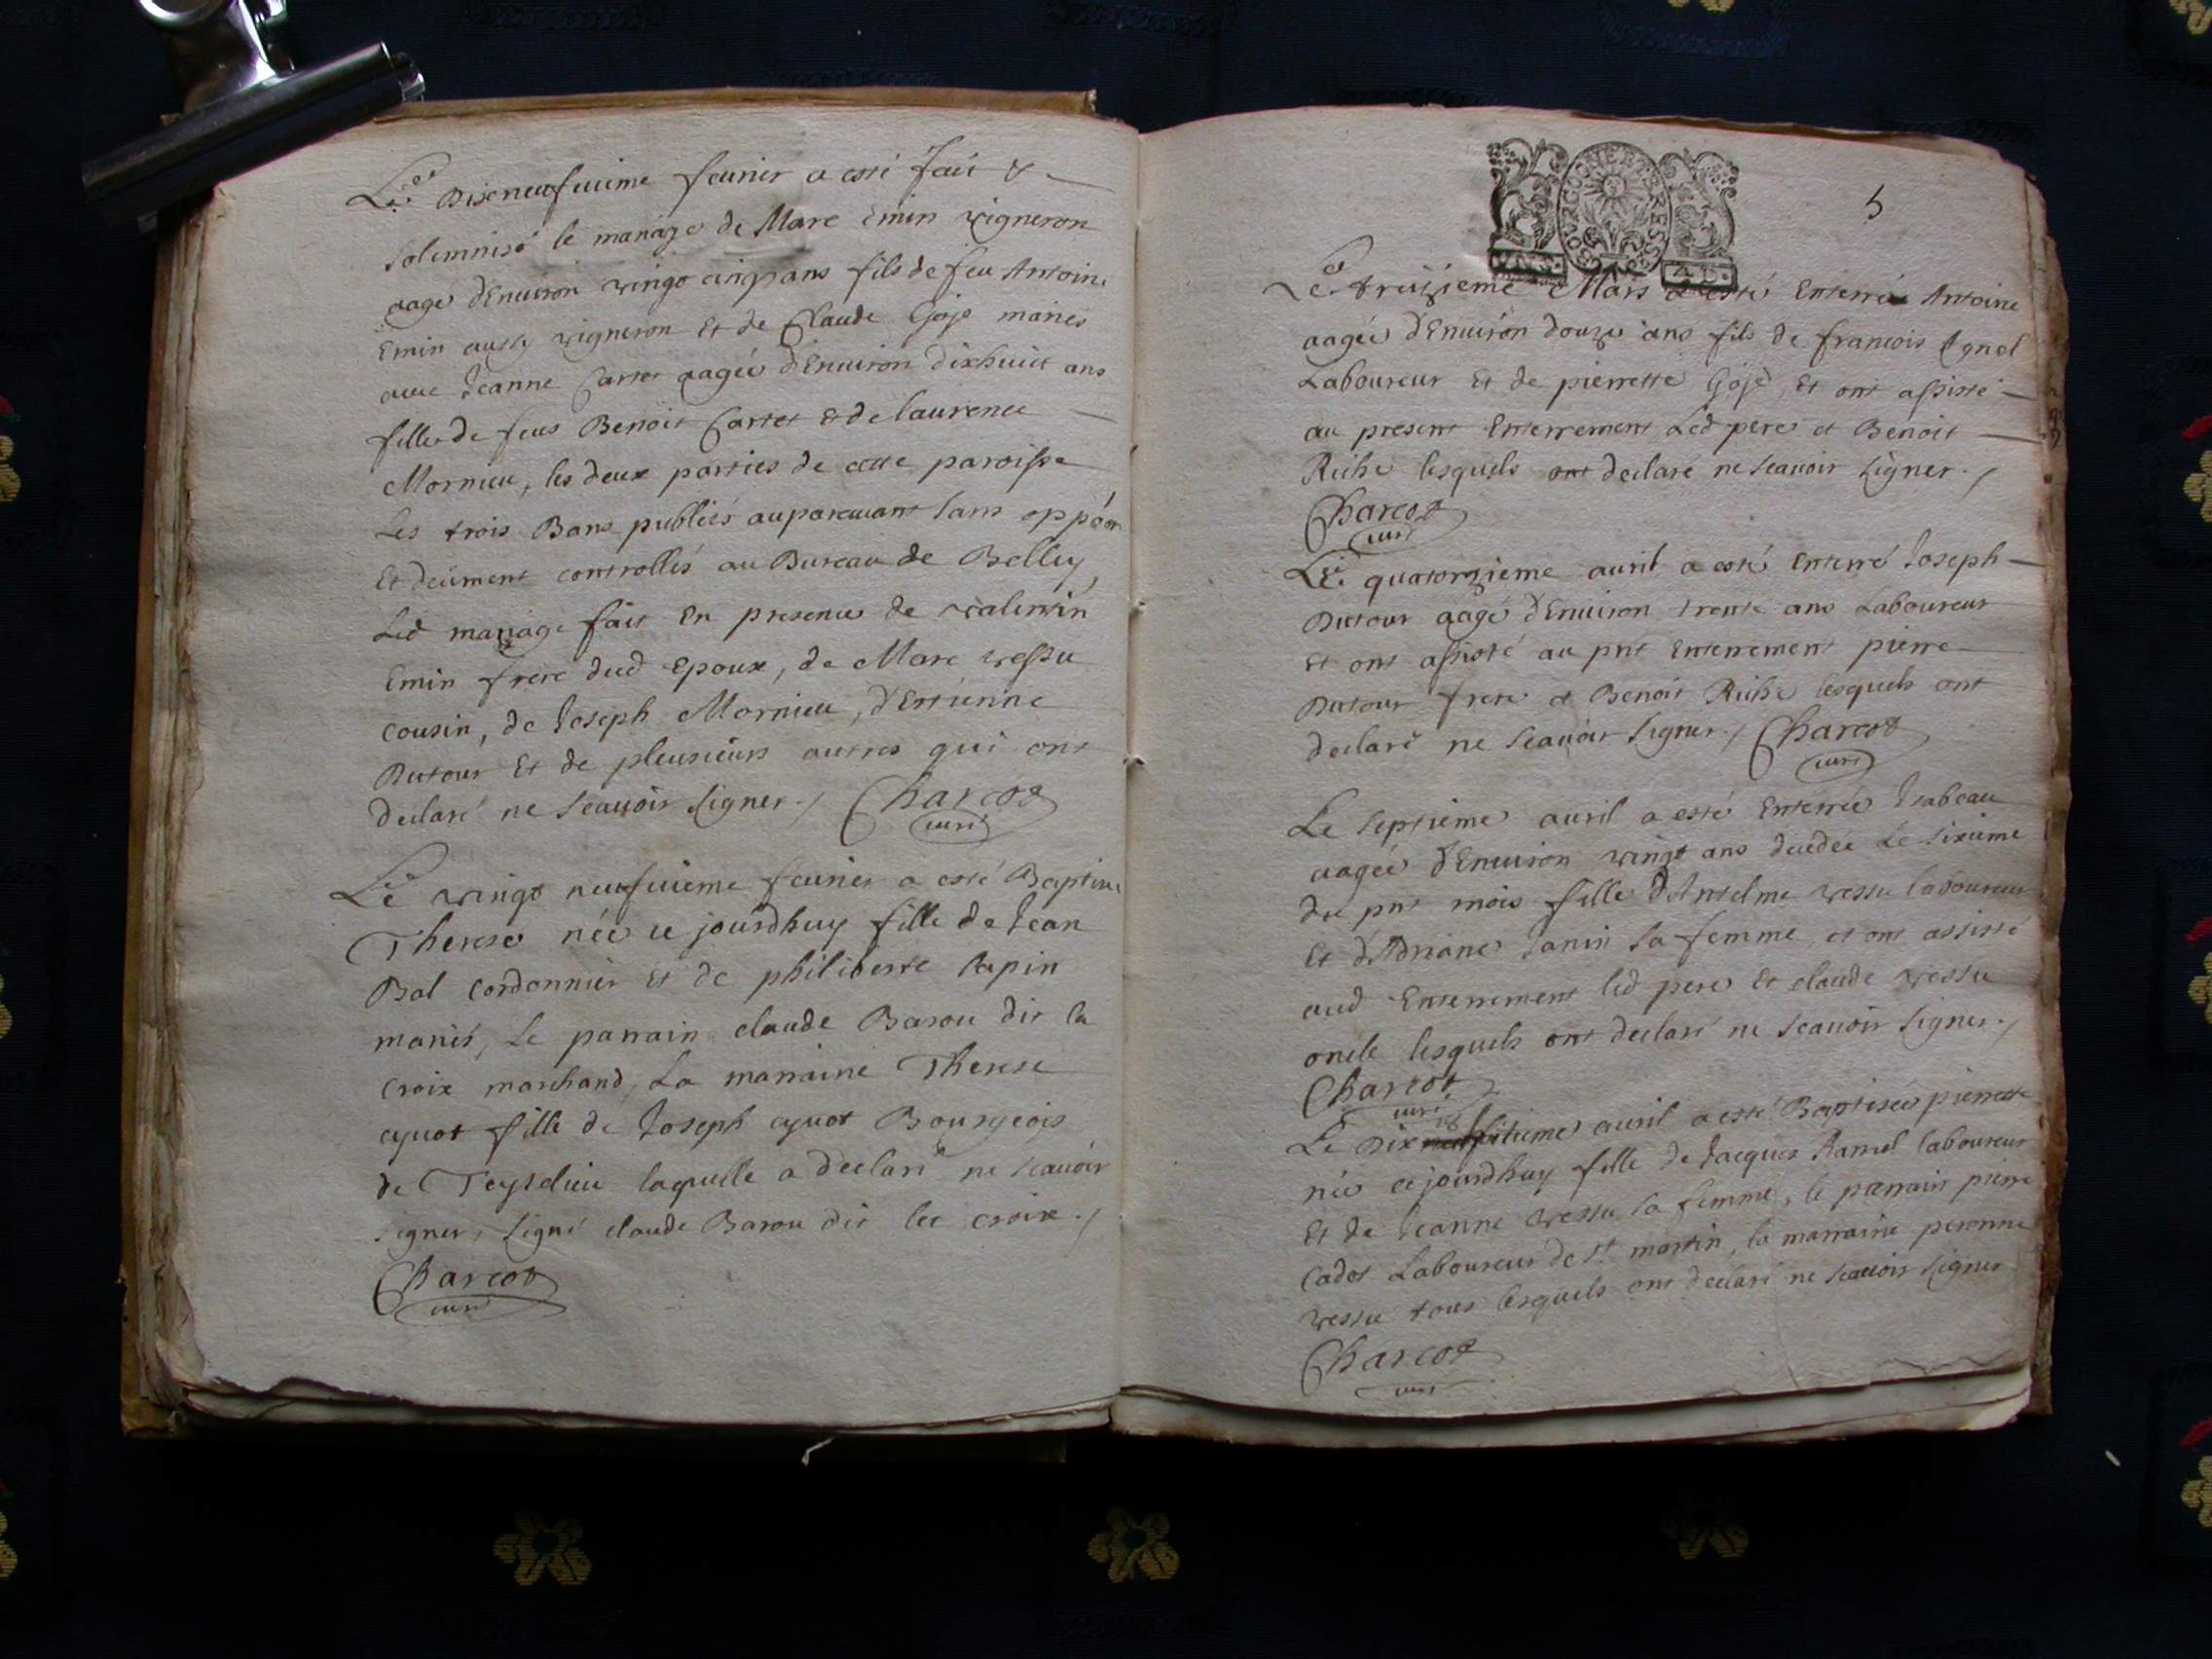 Le Diseneufuiime feurier a esté fait &
solemnisé le mariage de Marc Emin vigneron
aagé d'Enuiron vingt cinq ans fils de feu Antoine
Emin aussy vigneron Et de Claude Goje mariés
auec Jeanne Carret aagée d'Enuiron dixhuict ans
fille de feus Benoit Carret et de laurence
Mornieu, les deux parties de cette paroisse
Les trois Bans publiés auparauant sans oppôon
Et deüment controllés au Bureau de Belley,
Led mariage fait En presence de valentin
Emin frere dud Epoux, de Marc vessu
cousin, de Joseph Mornieu, d'Estienne
Dutour Et de pleusieurs autres qui ont
declaré ne scauoir signer. Charcot
curé
Le vingt neufuieme feurier a esté Baptisée
Therese née ce jourdhuy fille de Jean
Bal cordonnier et de philiberte lapin
mariés, Le parrain claude Barou dit la
croix marchand, La marraine Therese
cyuot fille de Joseph cyuot Bourgeois
de Teysolieu laquelle a declaré ne scauoir
signer, signé claude Barou dit la croix.
Charcot
curé
BOURGOGNE ET BRESSE
5
Le treizieme Mars a esté Enterré Antoine
aagée d'Enuiron douze ans fils de francois
Laboureur Et de pierrette Goje, Et ont assisté
au present Enterrement Led pere et Benoit
Riche lesquels ont declaré ne scauoir signer.
Charcot
curé
Le quatorzieme auril a esté Enterré Joseph
Dutour aagé d'Enuiron trente ans Laboureur
Et ont assisté au pnt Enterrement pierre
Dutour frere et Benoit Riche lesquels ont
declaré ne scauoir signer. Charcot
curé
Le septieme auril a esté Enterrée Isabeau
aagée d'Enuiron vingt ans decedée Le sixieme
du pnt mois fille d'Antelme vessu laboureur
Et d'Adriane Janin sa femme, et ont assisté
aud Enterrement led pere Et claude vessu
oncle lesquels ont declaré ne scauoir signer.
Charcot
curé
Le Dix auril a esté Baptisée pierrette
née ce jourdhuy fille de Jacques Ramel laboureur
Et de Jeanne vessu sa femme, le parrain pierre
Cadot Laboureur de St martin, la marraine peronne
vessu tous lesquels ont declaré ne scauoir signer
Charcot
curé